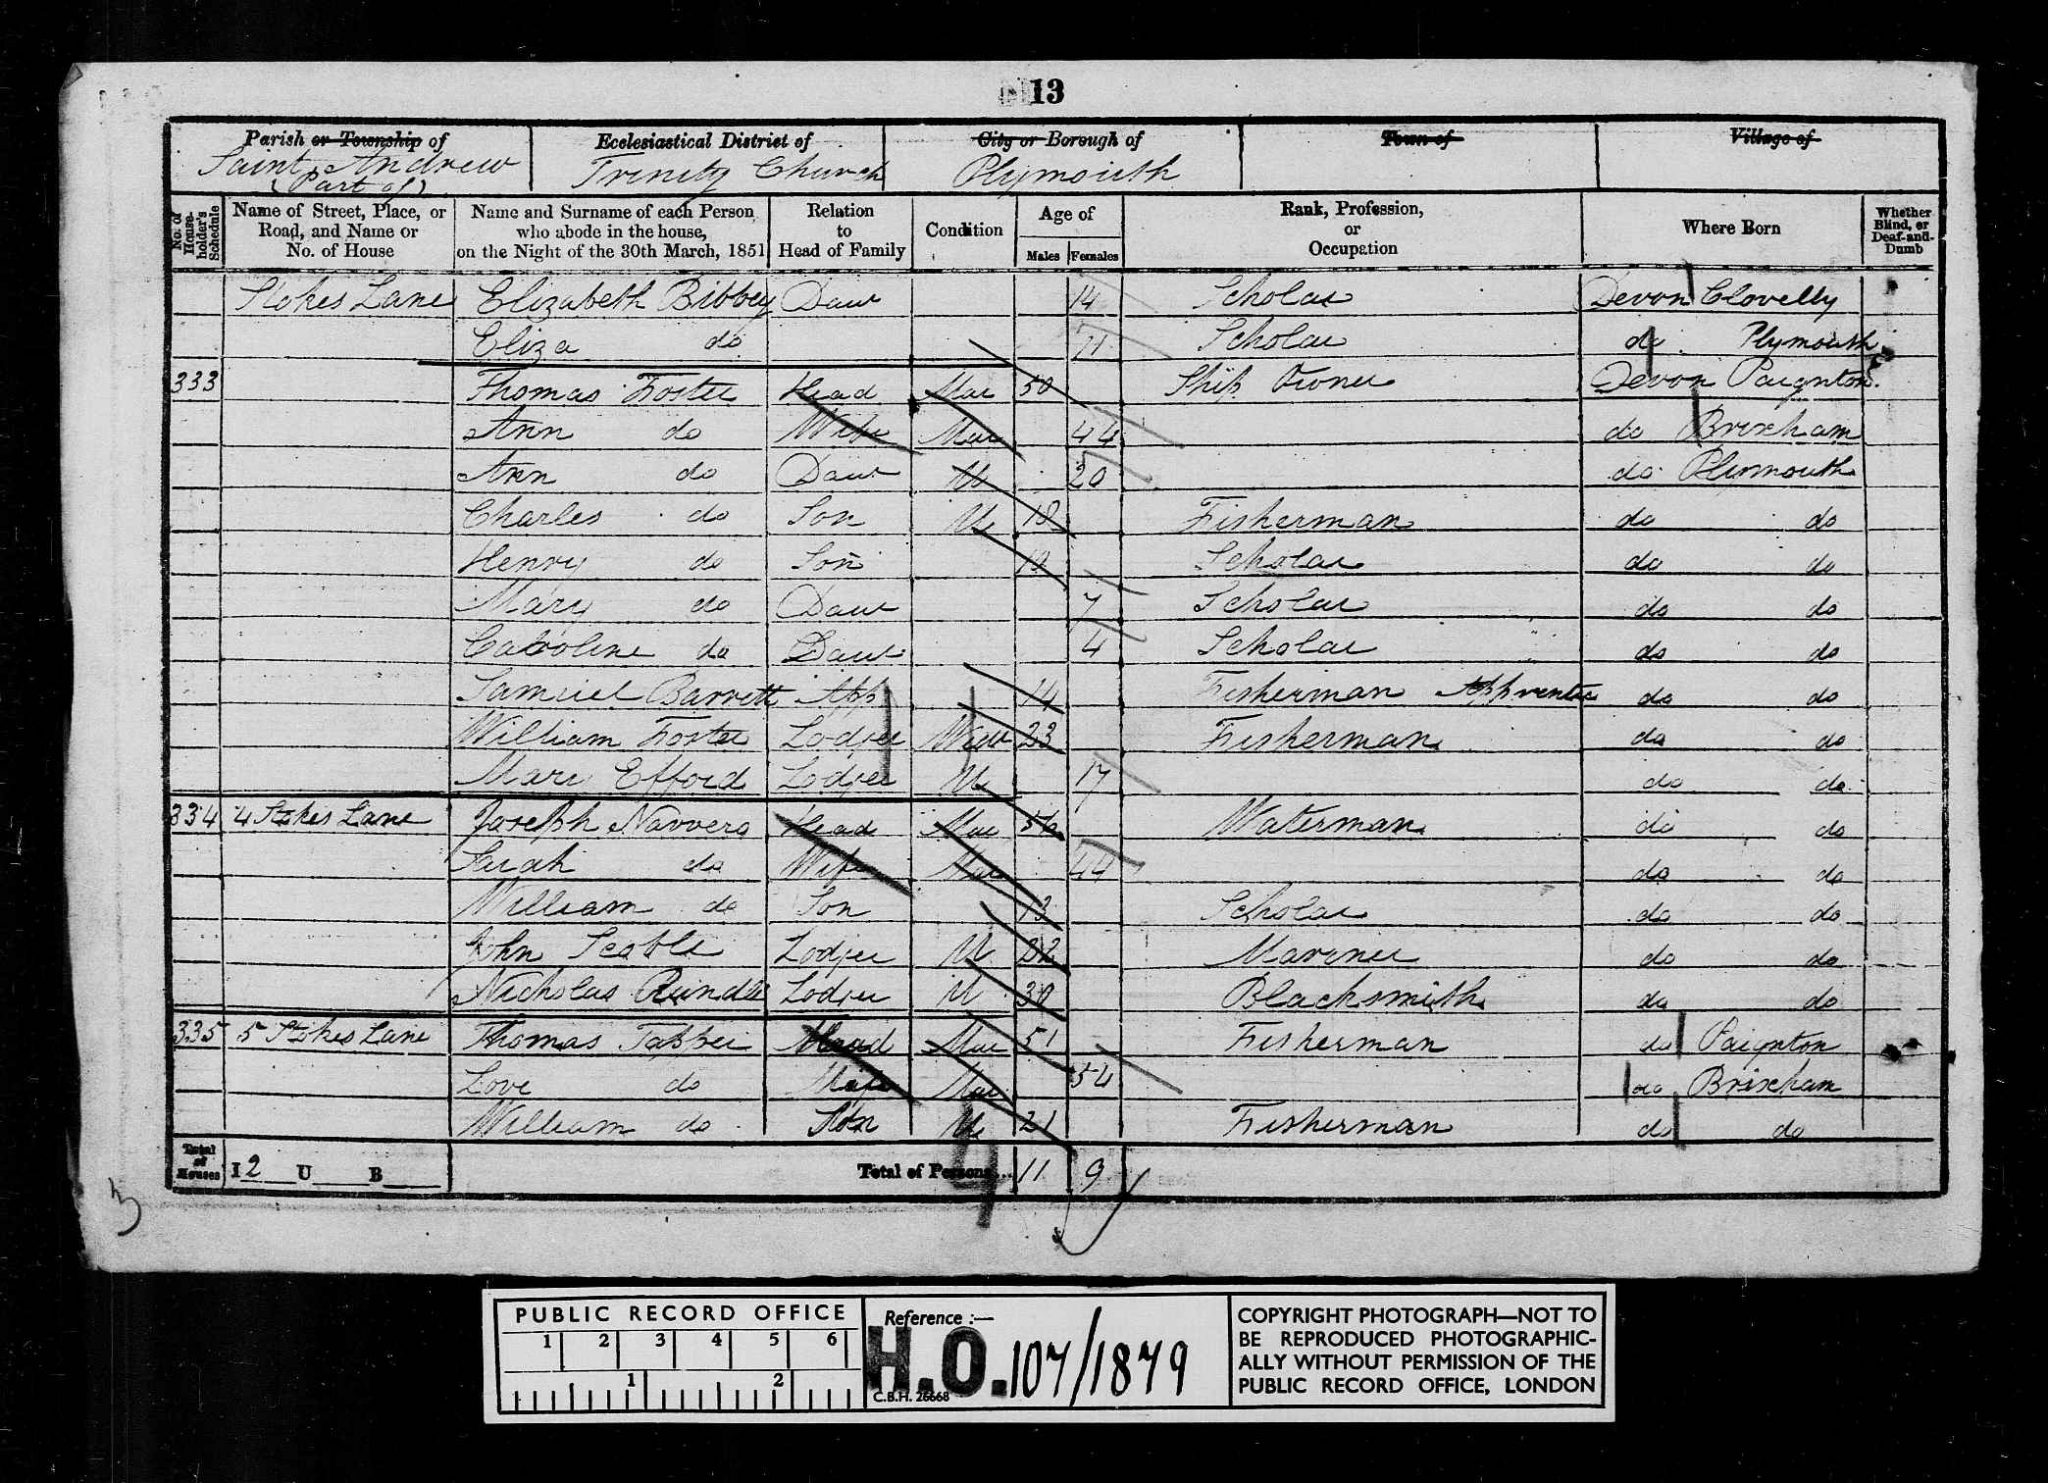 13
Parish or Township of Ecclesiastical District of City or Borough of Town of Village of
Saint Andrew Trinity Church Plymouth
(Part of)
No. of House-holder's Schedule
Name of Street, Place, or Road, and Name or No. of House
Name and Surname of each Person who abode in the house, on the Night of the 30th March, 1851
Relation to Head of Family
Condition
Age of
Males Females
Rank, Profession, or Occupation
Where Born
Whether Blind, or Deaf-and-Dumb
Stokes Lane Elizabeth Bibbey Daur 14 Scholar Devon Clovelly
Eliza do Scholar do Plymouth
333 Thomas Foster Head Mar 50 Ship Owner Devon Paignton
Ann do Wife Mar 44 do Brixham
Ann do Daur U 20 do Plymouth
Charles do Son U 18 Fisherman do do
Henry do Son Scholar do do
Mary do Daur 7 Scholar do do
Caroline do Daur 4 Scholar do do
Samuel Barrett App 14 Fisherman Apprentice do do
William Foster Lodger Widr 23 Fisherman do do
Mary Efford Lodger U 17 do do
334 4 Stokes Lane Joseph Navvero Head Mar 56 Waterman do do
Sarah do Wife Mar 44 do do
William do Son 13 Scholar do do
John Seable Lodger U 22 Mariner do do
Nicholas Rundle Lodger U 30 Blacksmith do do
335 5 Stokes Lane Thomas Tapper Head Mar 51 Fisherman do Paignton
Love do Wife Mar 54 do Brixham
William do Son U 21 Fisherman do do
Total of Houses I 2 U B Total of Persons... 11 9
3
4
PUBLIC RECORD OFFICE
1 2 3 4 5 6
1 2
Reference :—
H.O. 107/1879
C.B.H. 26668
COPYRIGHT PHOTOGRAPH—NOT TO
BE REPRODUCED PHOTOGRAPHIC-
ALLY WITHOUT PERMISSION OF THE
PUBLIC RECORD OFFICE, LONDON